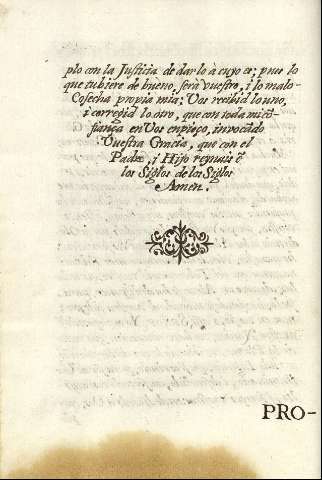 plo con la Justicia de darlo à cuyo es; pues lo
que tubiere de bueno serà vuestro, i lo malo
Cosecha propia mia: Vos recibid lo uno,
i corregid lo otro, que con toda mi cõ-
fiança en Vos empieço, invocãdo
Vuestra Gracia, que con el
Padre, i Hijo reynais ẽ
los Siglos de los Siglos
Amen.
PRO-